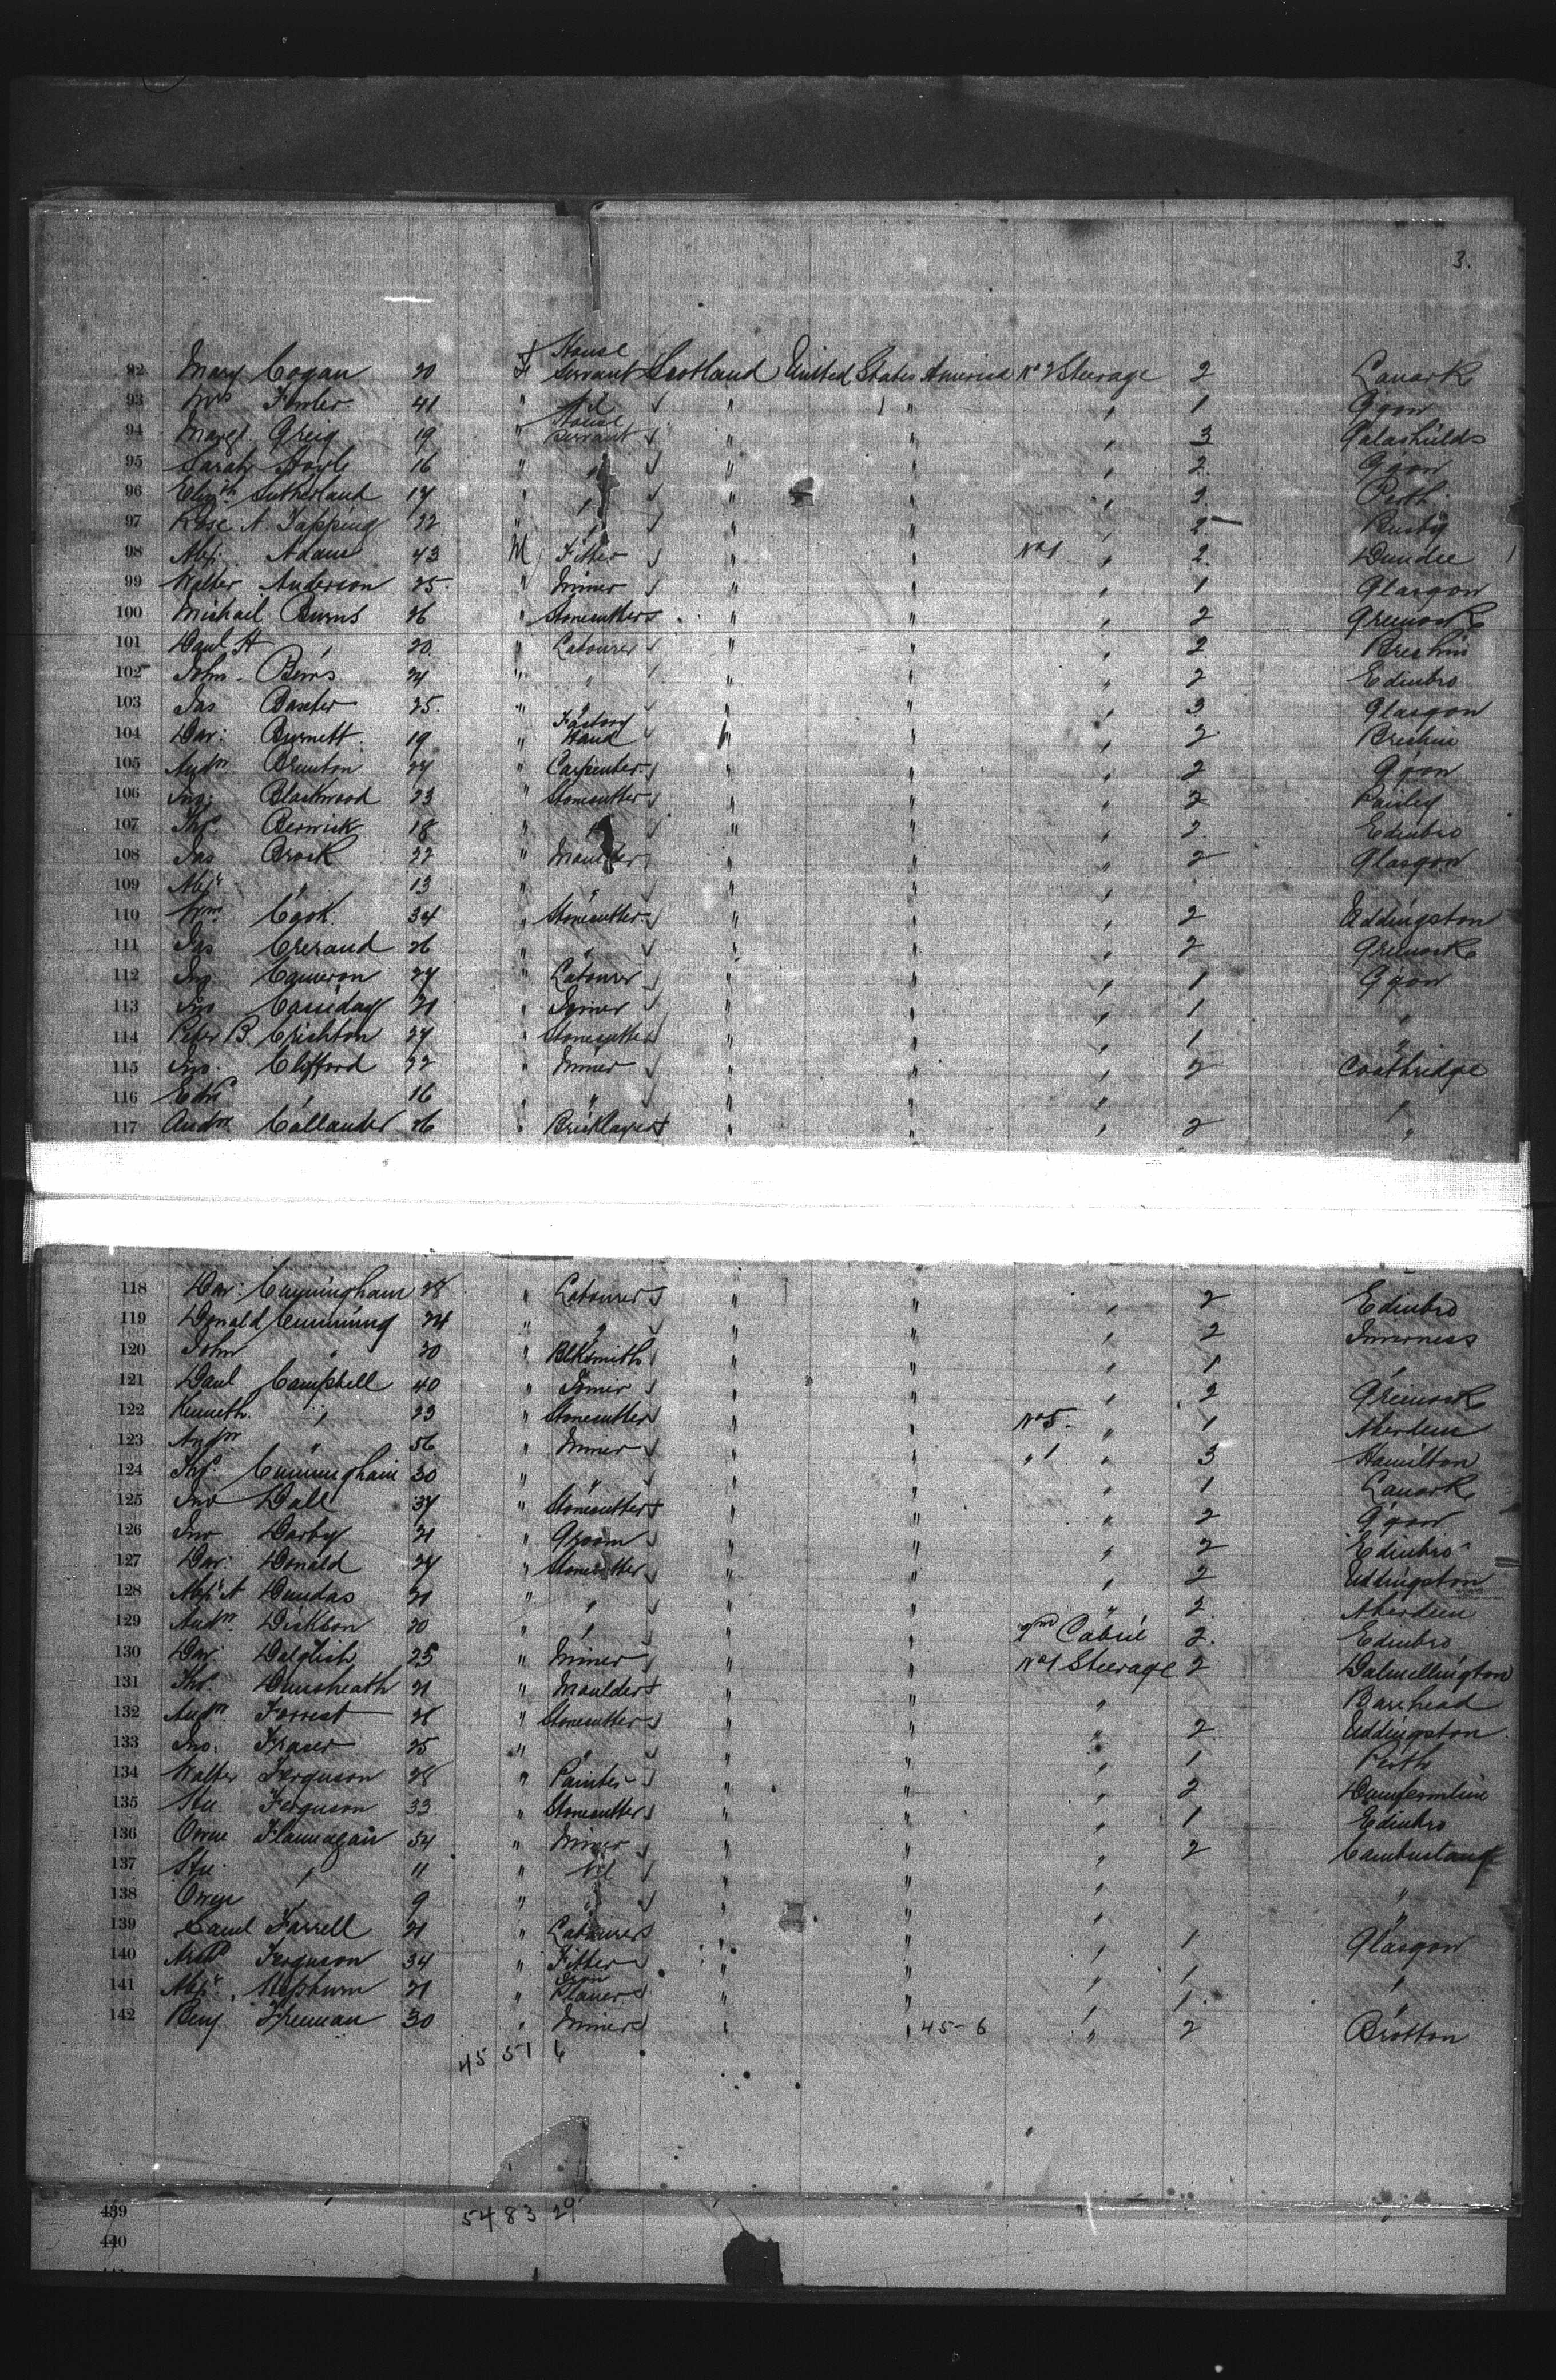 3.
92 Mary Cogan 20 F House Servant Scotland United States America No 2 Steerage 2 Lanark
93 Mrs Fowler 41 " Nil " " " 1 G'gow
94 Margt Greig 19 " House Servant " " " 3 Galashields
95 Sarah Hoyle 16 " " " " " 2 G'gow
96 Elizth Sutherland 17 " " " " " 2 Perth
97 Rose A. Tapping 22 " " " " " 2 Busby
98 Alexr Adam 43 M Fitter " " No 1 " 2 Dundee
99 Walter Anderson 25 " Miner " " " 1 Glasgow
100 Michael Burns 26 " Stonecutter " " " 2 Greenock
101 Danl H " 20 " Labourer " " " 2 Brechin
102 John Binns 24 " " " " " 2 Edinbro
103 Jas Baxter 25 " " " " " 3 Glasgow
104 Dav: Burnett 19 " Factory Hand " " " 2 Brechin
105 Andw Brunton 27 " Carpenter " " " 2 G'gow
106 Jno: Blackwood 23 " Stonecutter " " " 2 Paisley
107 Ths. Berwick 18 " " " " " 2 Edinbro
108 Jas Brock 22 " Moulder " " " 2 Glasgow
109 Alexr " 13 " " " "
110 Wm Cook 34 " Stonecutter " " " 2 Uddingston
111 Jas Creraud 26 " " " " " 2 Greenock
112 Jno Cameron 27 " Labourer " " " 1 G'gow
113 Jno Cassiday 21 " Joiner " " " 1 "
114 Peter B. Crichton 27 " Stonecutter " " " 1 "
115 Jno. Clifford 22 " Miner " " " 2 Coatbridge
116 Edwd " 16 " " " " " "
117 Andw Callander 26 " Bricklayer " " " 2 "
118 Dav: Cunningham 28 " Labourer " " " 2 Edinbro
119 Donald Cumming 24 " " " " " 2 Inverness
120 John " 30 " Blksmith " " " 1 "
121 Danl Campbell 40 " Joiner " " " 2 Greenock
122 Kenneth " 23 " Stonecutter " " No 5 " 1 Aberdeen
123 Andw " 56 " Miner " " " 1 " 3 Hamilton
124 Ths. Cunningham 30 " " " " " 1 Lanark
125 Jno Dall 37 " Stonecutter " " " 2 G'gow
126 Jno Darby 21 " Groom " " " 2 Edinbro
127 Dav: Donald 27 " Stonecutter " " " 2 Uddingston
128 Alexr A Dundas 21 " " " " " 2 Aberdeen
129 Andw Dickson 20 " " " " 2nd Cabin 2 Edinbro
130 Dav: Dalglish 25 " Miner " " No 1 Steerage 2 Dalmellington
131 Ths. Dunsheath 21 " Moulder " " " Barrhead
132 Andw Forrest 28 " Stonecutter " " " 2 Uddingston
133 Jno. Fraser 25 " " " " " 1 Perth
134 Walter Ferguson 28 " Painter " " " 2 Dunfermline
135 Stn. Ferguson 33 " Stonecutter " " " 1 Edinbro
136 Owen Flannagan 34 " Miner " " " 2 Cambuslang
137 Stn " 11 " Nil " " " "
138 Owen " 9 " " " " " "
139 Saml Farrell 21 " Labourer " " " 1 Glasgow
140 Archd Ferguson 34 " Fitter " " " 1 "
141 Alexr Hepburn 21 " Iron Planer " " " 1 "
142 Benj Freeman 30 " Miner " " 45-6 " 2 Brotton
45 51 6
439 54 83 29 "
440